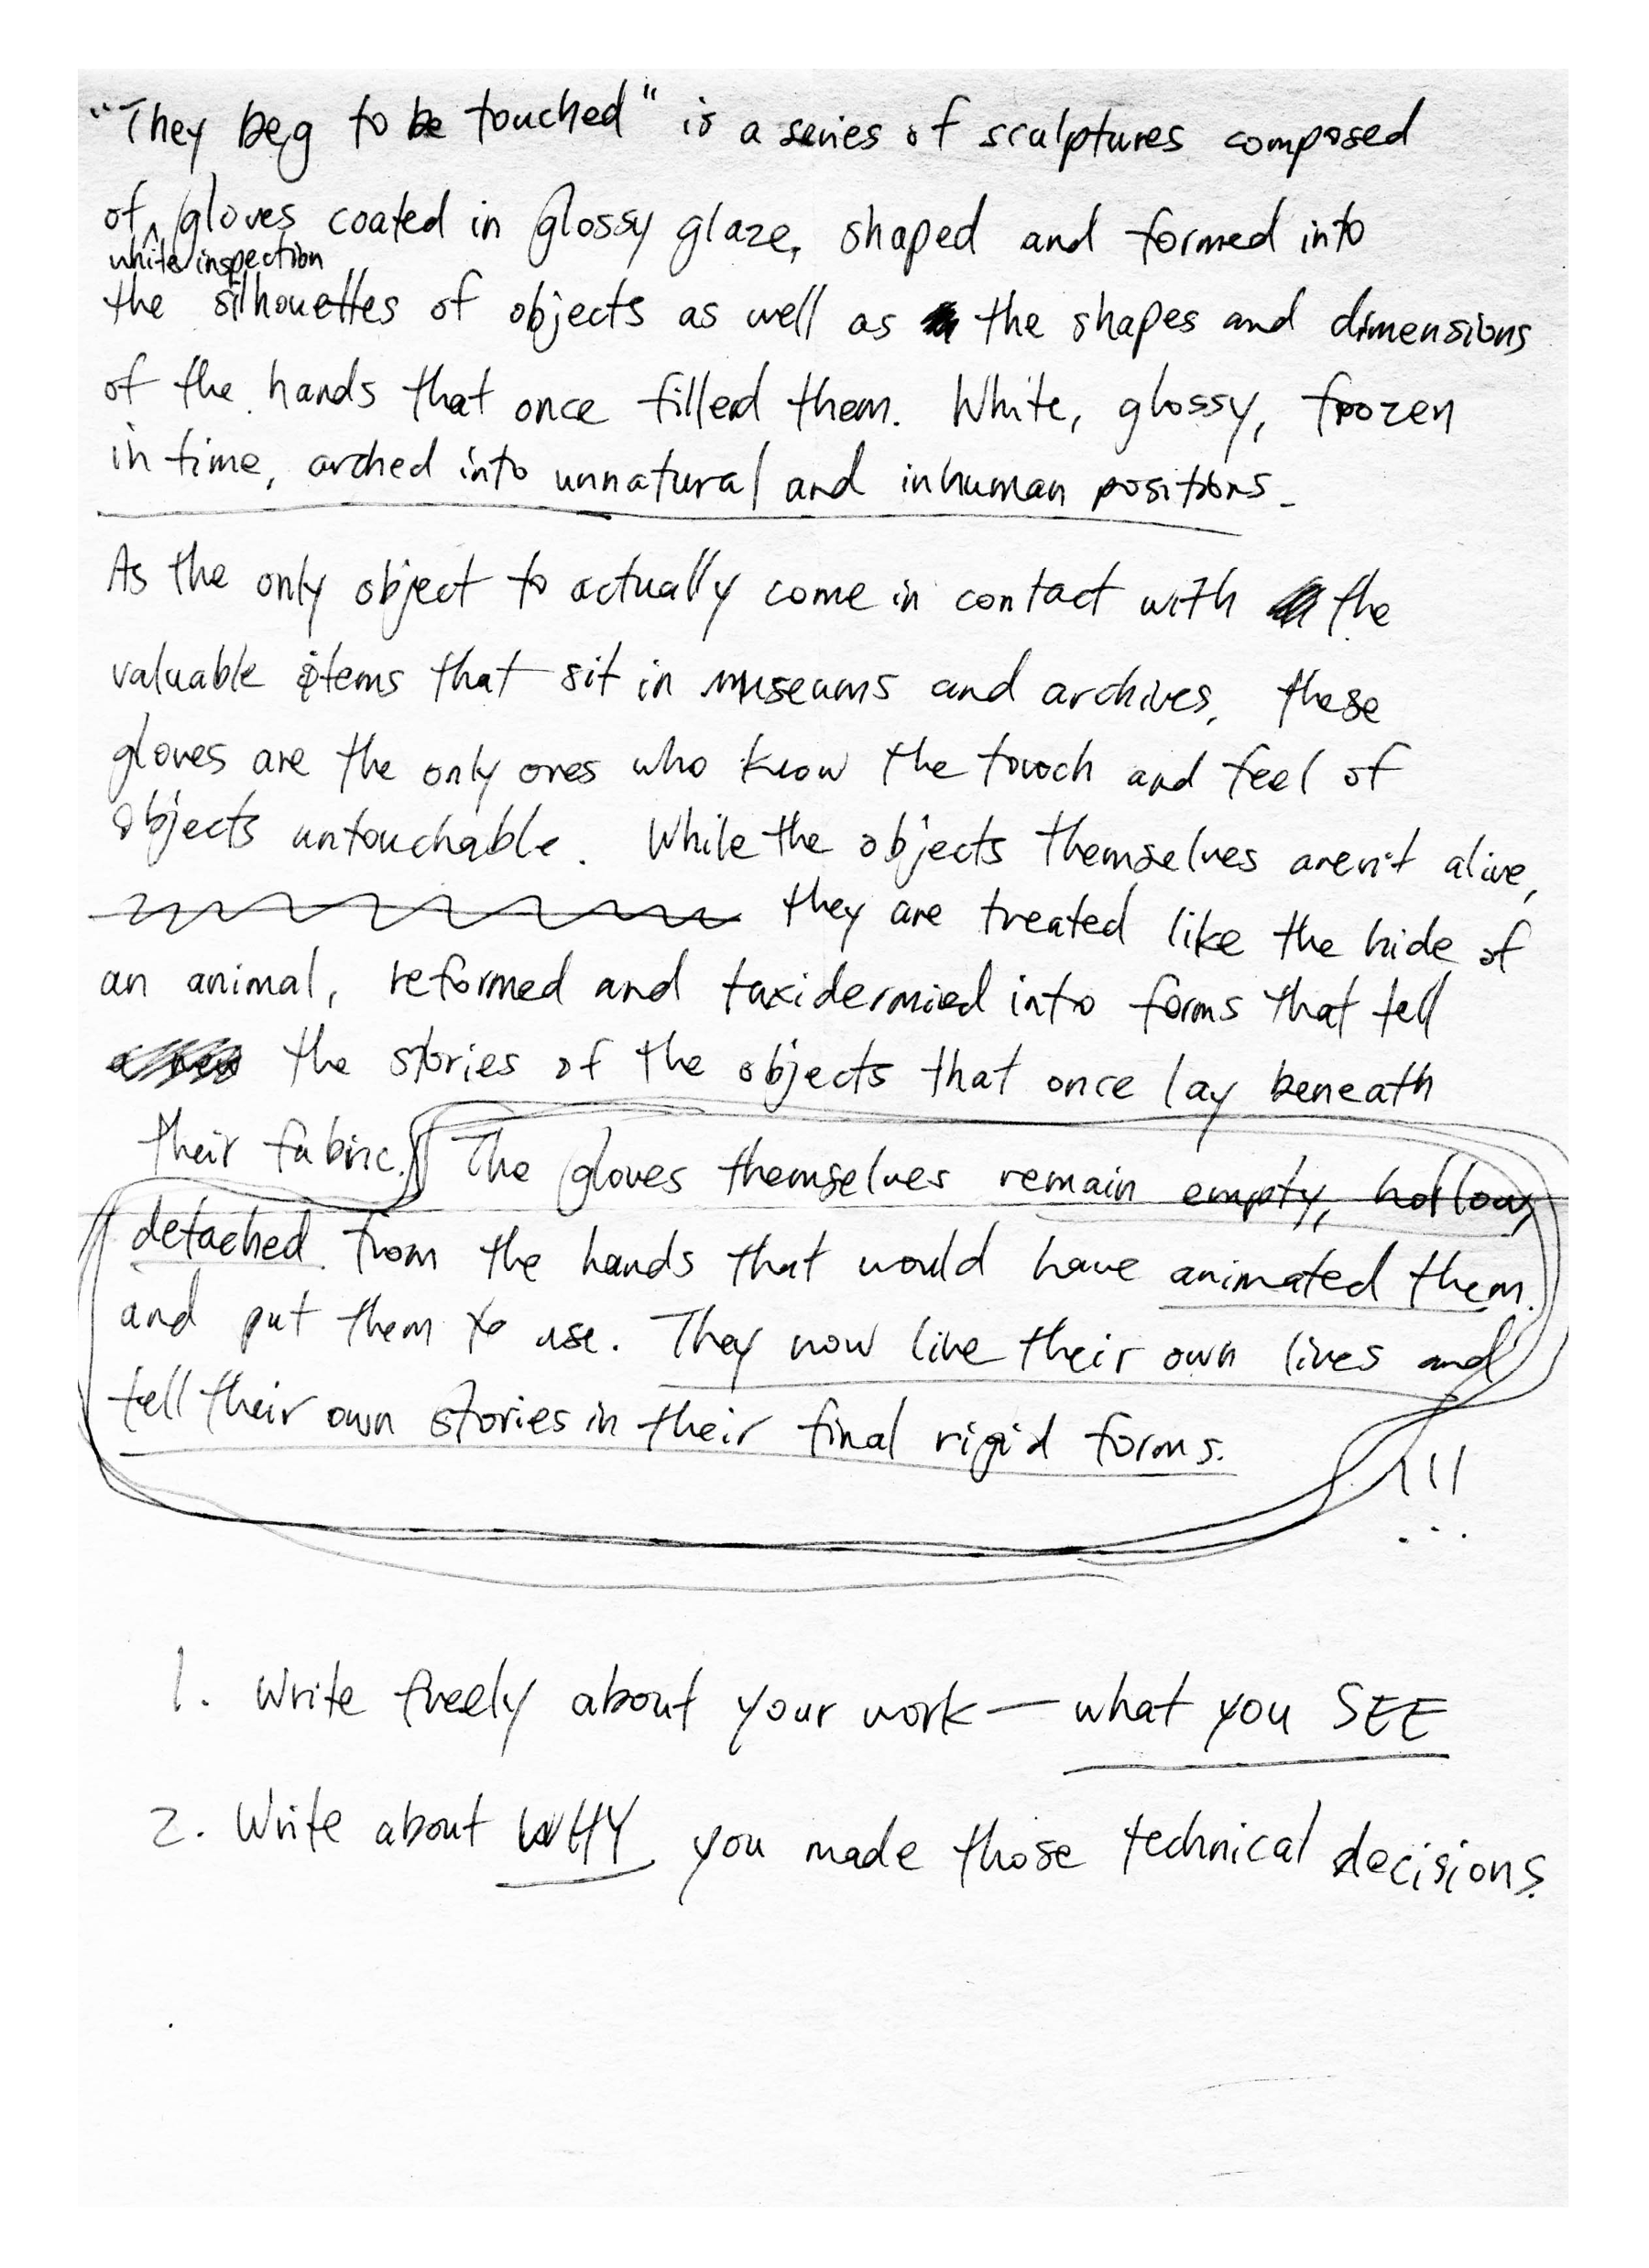 "They beg to be touched" is a series of sculptures composed
of gloves coated in glossy glaze, shaped and formed into
white inspection
the silhouettes of objects as well as the shapes and dimensions
of the hands that once filled them. White, glossy, frozen
in time, arched into unnatural and inhuman positions.
As the only object to actually come in contact with the
valuable items that sit in museums and archives, these
gloves are the only ones who know the touch and feel of
objects untouchable. While the objects themselves aren't alive,
they are treated like the hide of
an animal, reformed and taxidermied into forms that tell
the stories of the objects that once lay beneath
their fabric. The gloves themselves remain empty, hollow,
detached from the hands that would have animated them
and put them to use. They now live their own lives and
tell their own stories in their final rigid forms.
!!!
1. Write freely about your work — what you SEE
2. Write about WHY you made those technical decisions.